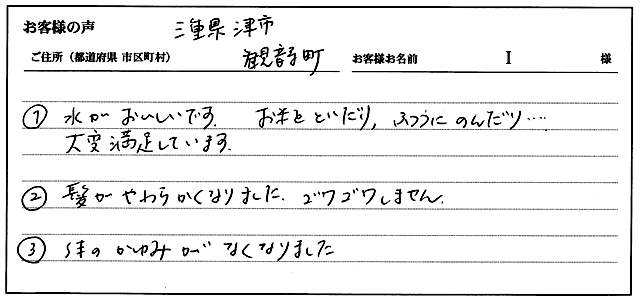 お客様の声 三重県津市
ご住所（都道府県 市区町村） 観音寺町 お客様お名前 I 様
① 水がおいしいです。 お米をといだり, ふつうにのんだり‥‥
大変満足しています。
② 髪がやわらかくなりました. ゴワゴワしません.
③ 体のかゆみがなくなりました